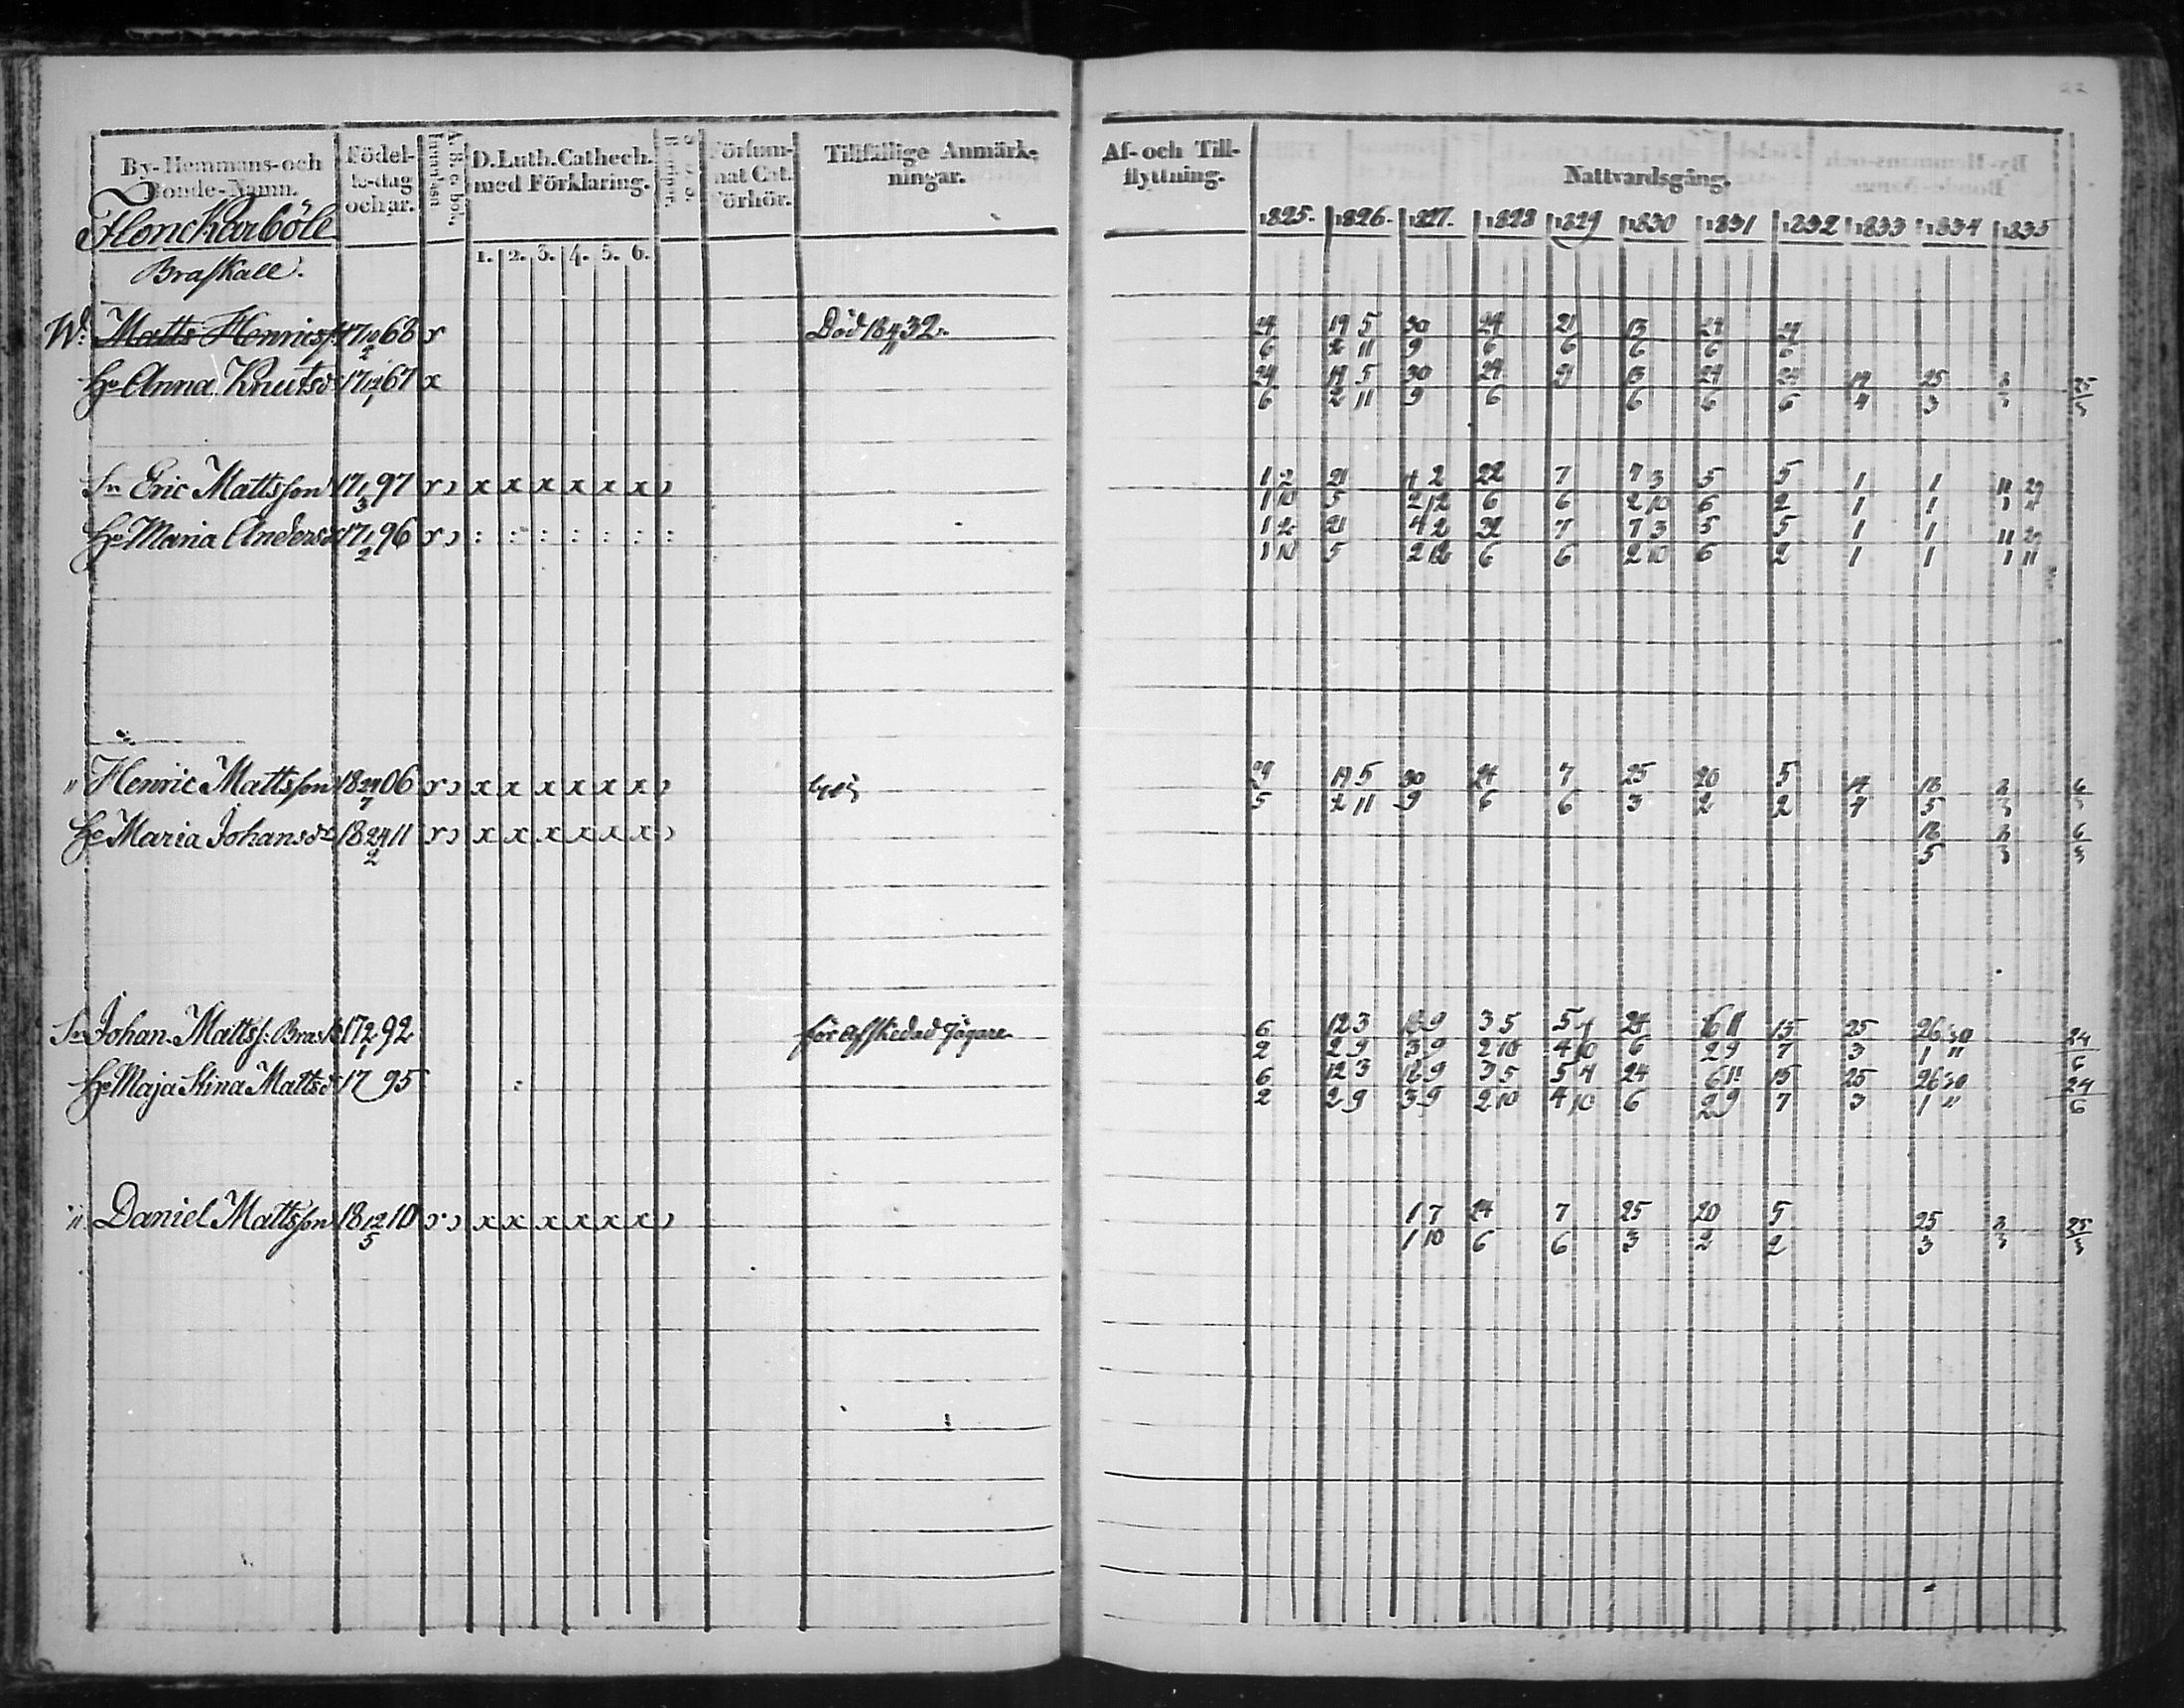 By-Hemmans-och Bonde-Namn.
Födel- se-dag och år.
D. Luth. Cathech. med Förklaring.
1. 2. 3. 4. 5. 6.
Försum- nat Cat. förhör.
Tillfällige Anmärk- ningar.
Af- och Till- flyttning.
Nattvardsgång.
1825. 1826. 1827. 1828 1829 1830 1831 1832 1833 1834 1835
Flonckarböle
Braskall.
Matts Henricss: 17 68 x Död 18 32. 24 19 5 30 24 21 13 24 24
6 2 11 9 6 6 6 6 6
Hu Anna Knutsdr 17 67 x 24 19 5 30 24 21 13 24 24 14 25 8 25
6 2 11 9 6 6 6 6 4 3 3 3
Sn Eric Mattsson 17 1/3 97 x x x x x x 1 2 21 4 2 22 7 7 3 5 5 1 1 11 29
1 10 5 2 12 6 6 2 10 6 2 1 1
Hu Maria Andersdr 17 1/2 96 : : : : : : : 1 2 21 4 2 7 7 3 5 5 1 1 11
1 10 5 2 12 6 6 2 10 6 2 1 1 1 11
" Henric Mattsson 18 06 x x x x x x 19 5 30 24 7 25 20 5 14 18 8 6
5 2 11 9 6 6 3 2 2 4 5 3 3
Hu Maria Johansdr 18 24/2 11 x x x x x x 18 8 6
5 3 3
Sn Johan Mattss: Brask 17 2/1 92 för afskedad Jägare 6 12 3 9 3 5 5 4 24 6 11 15 25 26 30 24
2 2 9 3 9 2 10 4 10 6 2 9 7 3 1 " 6
Hu Maja Stina Mattsdr 17 95 6 12 3 9 3 5 5 4 24 6 11 15 25 26 30 24
2 2 9 3 9 2 10 4 10 6 2 9 7 3 1 " 6
" Daniel Mattsson 18 12/5 10 x x x x x x 1 7 24 7 25 20 5 25 8 25
1 10 6 6 3 2 2 3 3 3